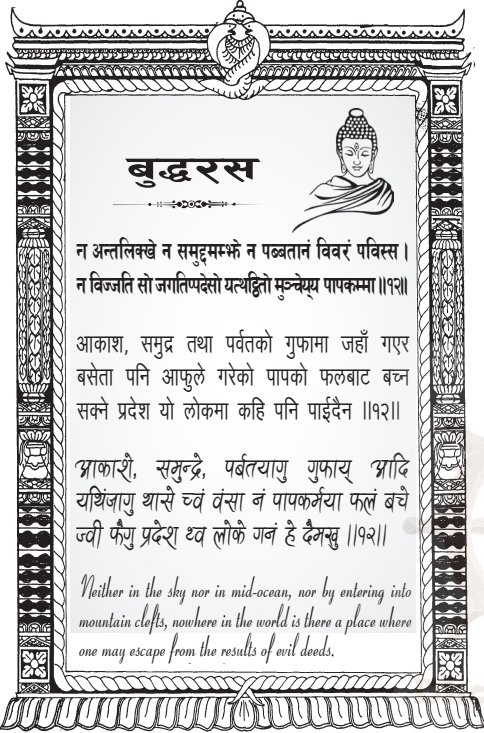 बुद्धरस
न अन्तलिक्खे न समुद्दमम्झे न पब्बतानं विवरं पविस्स ।
न विज्जति सो जगतिप्पदेसो यत्थट्ठितो मुञ्चेय्य पापकम्मा ॥१२॥
आकाश, समुद्र तथा पर्वतको गुफामा जहाँ गएर
बसेता पनि आफुले गरेको पापको फलबाट बच्न
सक्ने प्रदेश यो लोकमा कहि पनि पाईदैन ॥१२॥
आकाशे, समुन्द्रे, पर्बतयागु गुफाय् आदि
यथिंजागु थासे च्वं वंसा नं पापकर्मया फलं बचे
ज्वी फैगु प्रदेश थ्व लोके गनं हे दैमखु ॥१२॥
Neither in the sky nor in mid-ocean, nor by entering into
mountain clefts, nowhere in the world is there a place where
one may escape from the results of evil deeds.